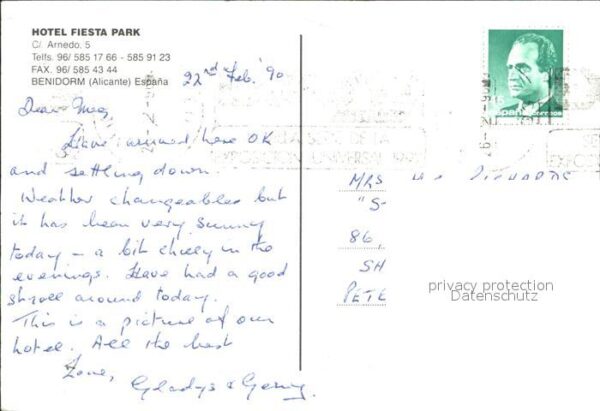 HOTEL FIESTA PARK
C/. Arnedo, 5
Telfs. 96/ 585 17 66 - 585 91 23
FAX. 96/ 585 43 44
BENIDORM (Alicante) España
22nd Feb. '90
Dear Meg,
Have arrived here OK
and settling down.
Weather changeable but
it has been very sunny
today - a bit chilly in the
evenings. Have had a good
stroll around today.
This is a picture of our
hotel. All the best
Love,
Gladys & Gerry
DE LA
EXPOSICION UNIVERSAL 1992
MRS RICHARDS
"S-
86,
SH
PETE
privacy protection
Datenschutz